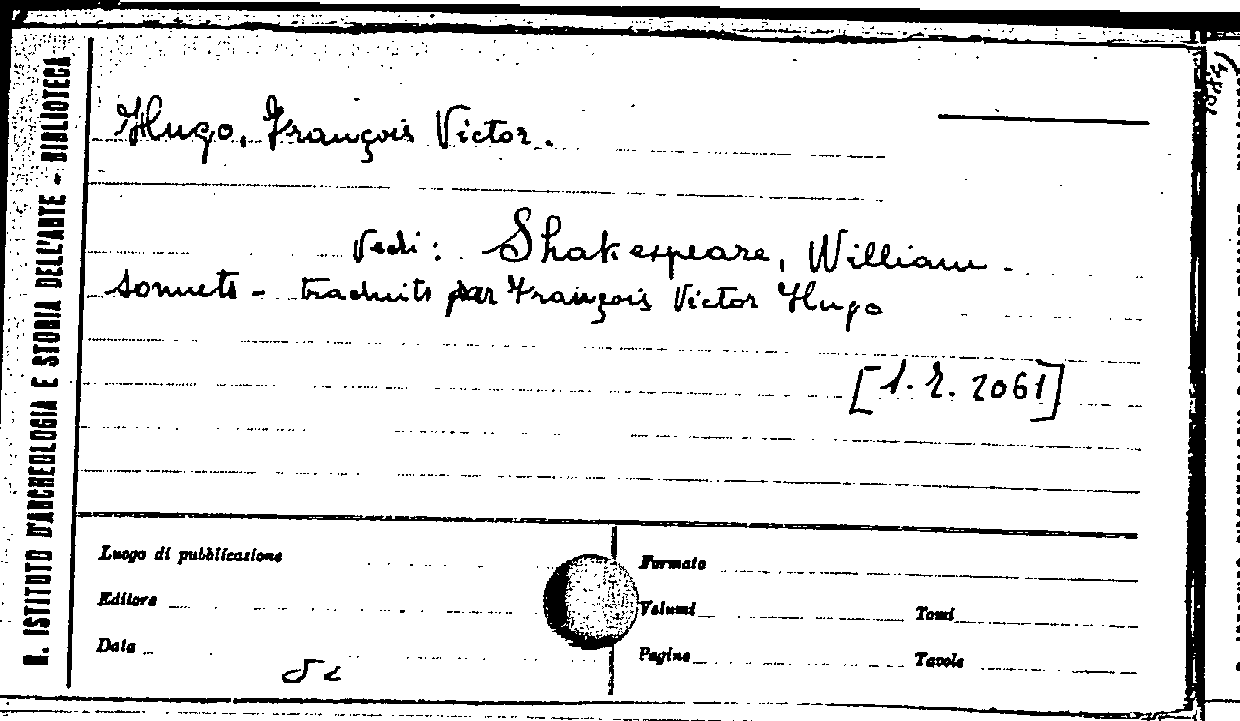 R. ISTITUTO D'ARCHEOLOGIA E STORIA DELL'ARTE - BIBLIOTECA
Hugo, François Victor.
Vedi: Shakespeare, William -
Sonnets - traduits par François Victor Hugo
[1. 2. 2061]
Luogo di pubblicazione
Editore
Data
Formato
Volumi
Tomi
Pagine
Tavole